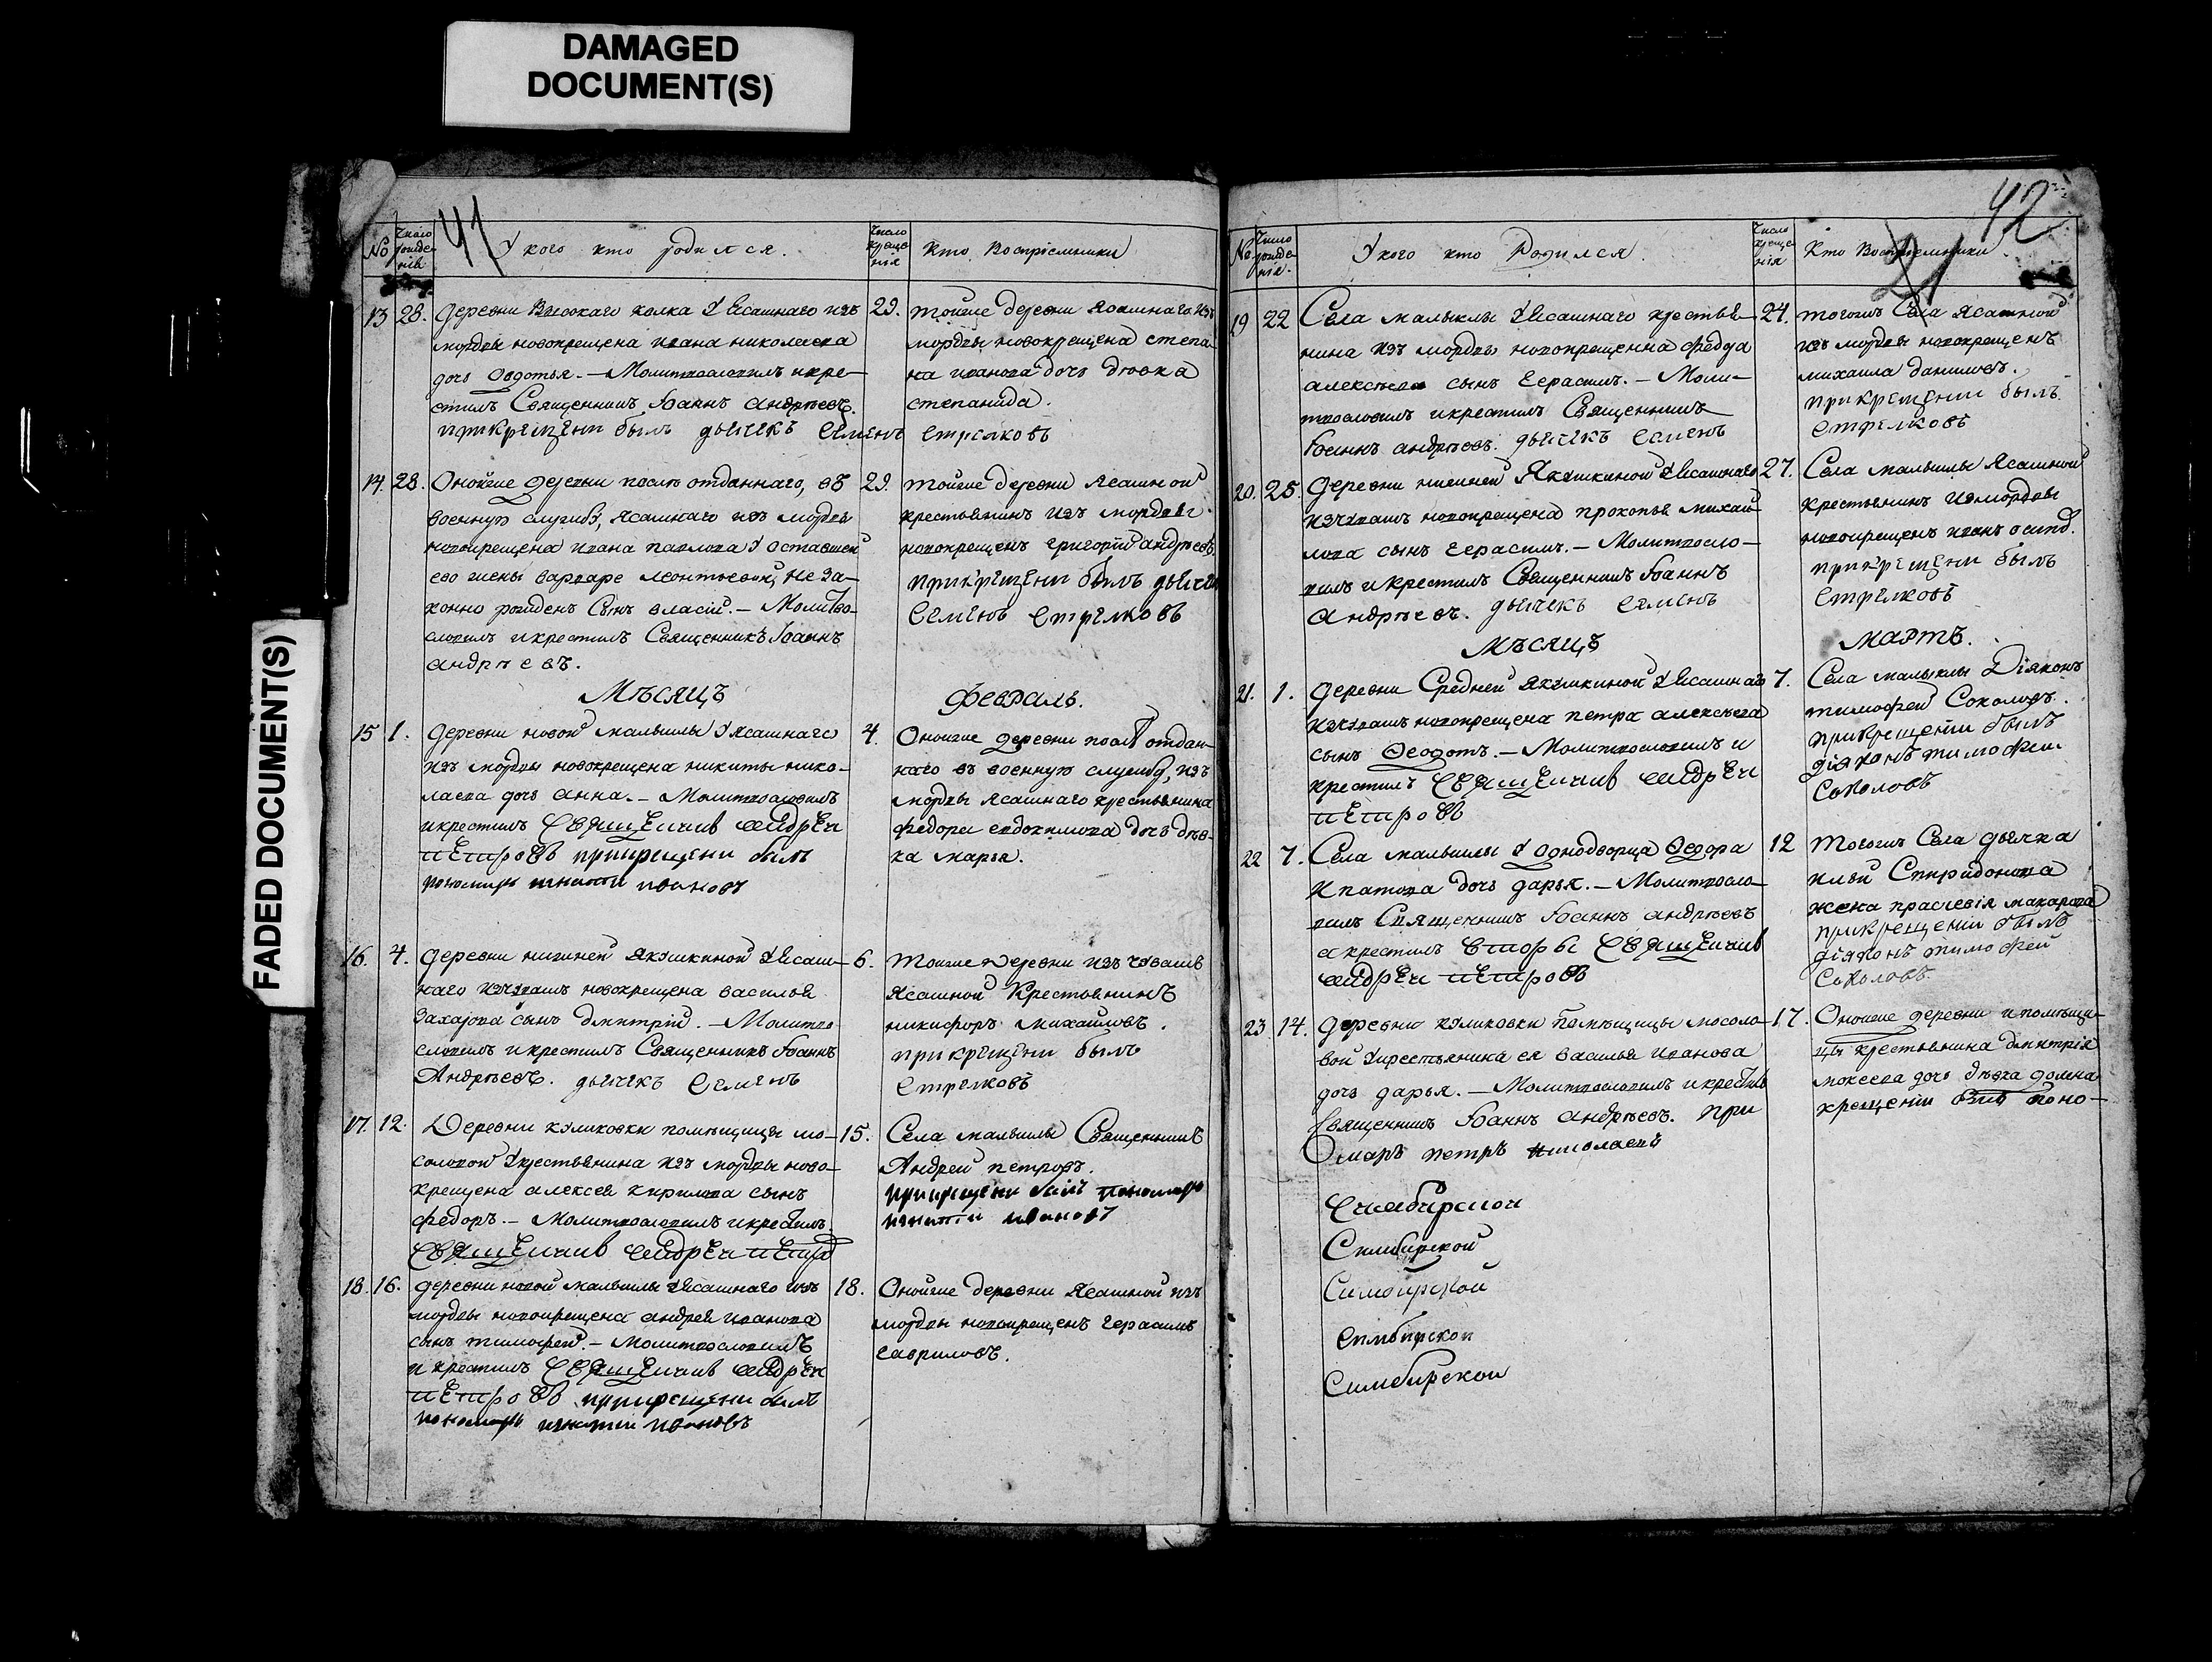 DAMAGED
DOCUMENT(S)
FADED DOCUMENT(S)
41
No
Число рожде-нія
У кого кто родился.
Число креще-нія
Кто Воспріемники
13 28. Деревни Высокаго колка У Ясашнаго изъ
мордвы новокрещена ивана николаева
дочь Овдотья. — Молитвословилъ и кре-
стилъ Священникъ Іоаннъ андрѣевъ.
при крещени былъ дьячекъ Семенъ Стрелковъ
29. тойже деревни Ясашнаго изъ
мордвы новокрещена степа-
на иванова дочь дѣвка
степанида.
14. 28. Оной же деревни послѣ отданнаго, въ
военную службу, Ясашнаго изъ мордвы
новокрещена ивана павлова У оставшей
ево жены варваре леонтьевой, не за-
конно рожденъ Сынъ власій. — Молитво-
словилъ и крестилъ Священникъ Іоаннъ
андрѣевъ.
29. тойже деревни Ясашной
крестьянинъ изъ мордвы
новокрещенъ григорій андрѣевъ
при крещени былъ дьячекъ
Семенъ Стрелковъ
Мѣсяцъ Февраль.
15 1. Деревни новой малыклы У Ясашнаго
изъ мордвы новокрещена никиты нико-
лаева дочь анна. — Молитвословилъ
и крестилъ Священникъ андрей
петровъ при крещени былъ
пономарь игнатій ивановъ
4. Оной же деревни послѣ отдан-
наго въ военную службу, изъ
мордвы Ясашнаго крестьянина
федора евдокимова дочь дѣв-
ка марья.
16. 4. Деревни нижней Якушкиной У Ясаш-
наго изчувашъ новокрещена василья
Захарова сынъ дмитрій. — Молитво-
словилъ и крестилъ Священникъ Іоаннъ
Андрѣевъ. дьячекъ Семенъ
6. тойже деревни изъ чувашъ
Ясашной Крестьянинъ
никифоръ михайловъ.
при крещени былъ
Стрелковъ
17. 12. Деревни куликовки помѣщицы мо-
соловой У крестьянина изъ мордвы ново-
крещена алексея кирилова сынъ
федоръ. — Молитвословилъ и крестилъ
Священникъ андрей петровъ
15. Села малыклы Священникъ
Андрей петровъ.
при крещени былъ пономарь
игнатій ивановъ
18. 16. деревни новой малыклы У Ясашнаго изъ
мордвы новокрещена андрея иванова
сынъ тимофей. — Молитвословилъ
и крестилъ Священникъ андрей
петровъ при крещени былъ
пономарь игнатій ивановъ
18. Оной же деревни Ясашной изъ
мордвы новокрещенъ герасимъ
гавриловъ.
42
21
No
Число рожде-нія.
У кого кто Родился.
Число креще-нія
Кто Воспріемники
19 22 Села малыклы У Ясашнаго крестья-
нина изъ мордвы новокрещенна федора
алексѣева сынъ герасимъ. — Моли-
твословилъ и крестилъ Священникъ
Іоаннъ андрѣевъ. дьячекъ Семенъ
24. тогожъ Села Ясашной
изъ мордвы новокрещенъ
михаила даниловъ.
при крещени былъ
Стрелковъ
20. 25. Деревни нижней Якушкиной У Ясашнаго
изчувашъ новокрещена прокопья михай-
лова сынъ герасимъ. — Молитвосло-
вилъ и крестилъ Священникъ Іоаннъ
Андрѣевъ. дьячекъ Семенъ
27. Села малыклы Ясашной
крестьянинъ измордвы
новокрещенъ иванъ осипо.
при крещени былъ
Стрелковъ
Мѣсяцъ мартъ.
21. 1. Деревни Средней якушкиной У Ясашнаго
изчувашъ новокрещена петра алексѣева
сынъ Ѳеодотъ. — Молитвословилъ и
крестилъ Священникъ андрей
петровъ
7. Села малыклы Діяконъ
тимофей Соколовъ.
при крещении былъ
діяконъ тимофей
Соколовъ
22 7. Села малыклы У Однодворца Ѳедора
ипатова дочь дарья. — Молитвосло-
вилъ Священникъ Іоаннъ андрѣевъ
а крестилъ вторы Священникъ
андрей петровъ
12 тогожъ Села дьячка
ильи Спиридонова
жена прасковія макарова
при крещении былъ
діяконъ тимофей
Соколовъ.
23 14. Деревни куликовки помѣщицы мосоло-
вой У крестьянина ея василья иванова
дочь дарья. — Молитвословилъ и крестилъ
Священникъ Іоаннъ андрѣевъ. при
17. Оной же деревни и помѣщи-
цы крестьянина дмитрія
мокеева дочь дѣвка домна
крещении былъ поно-
марь петръ николаевъ
Симбирской
Симбирской
Симбирской
Симбирской
Симбирской